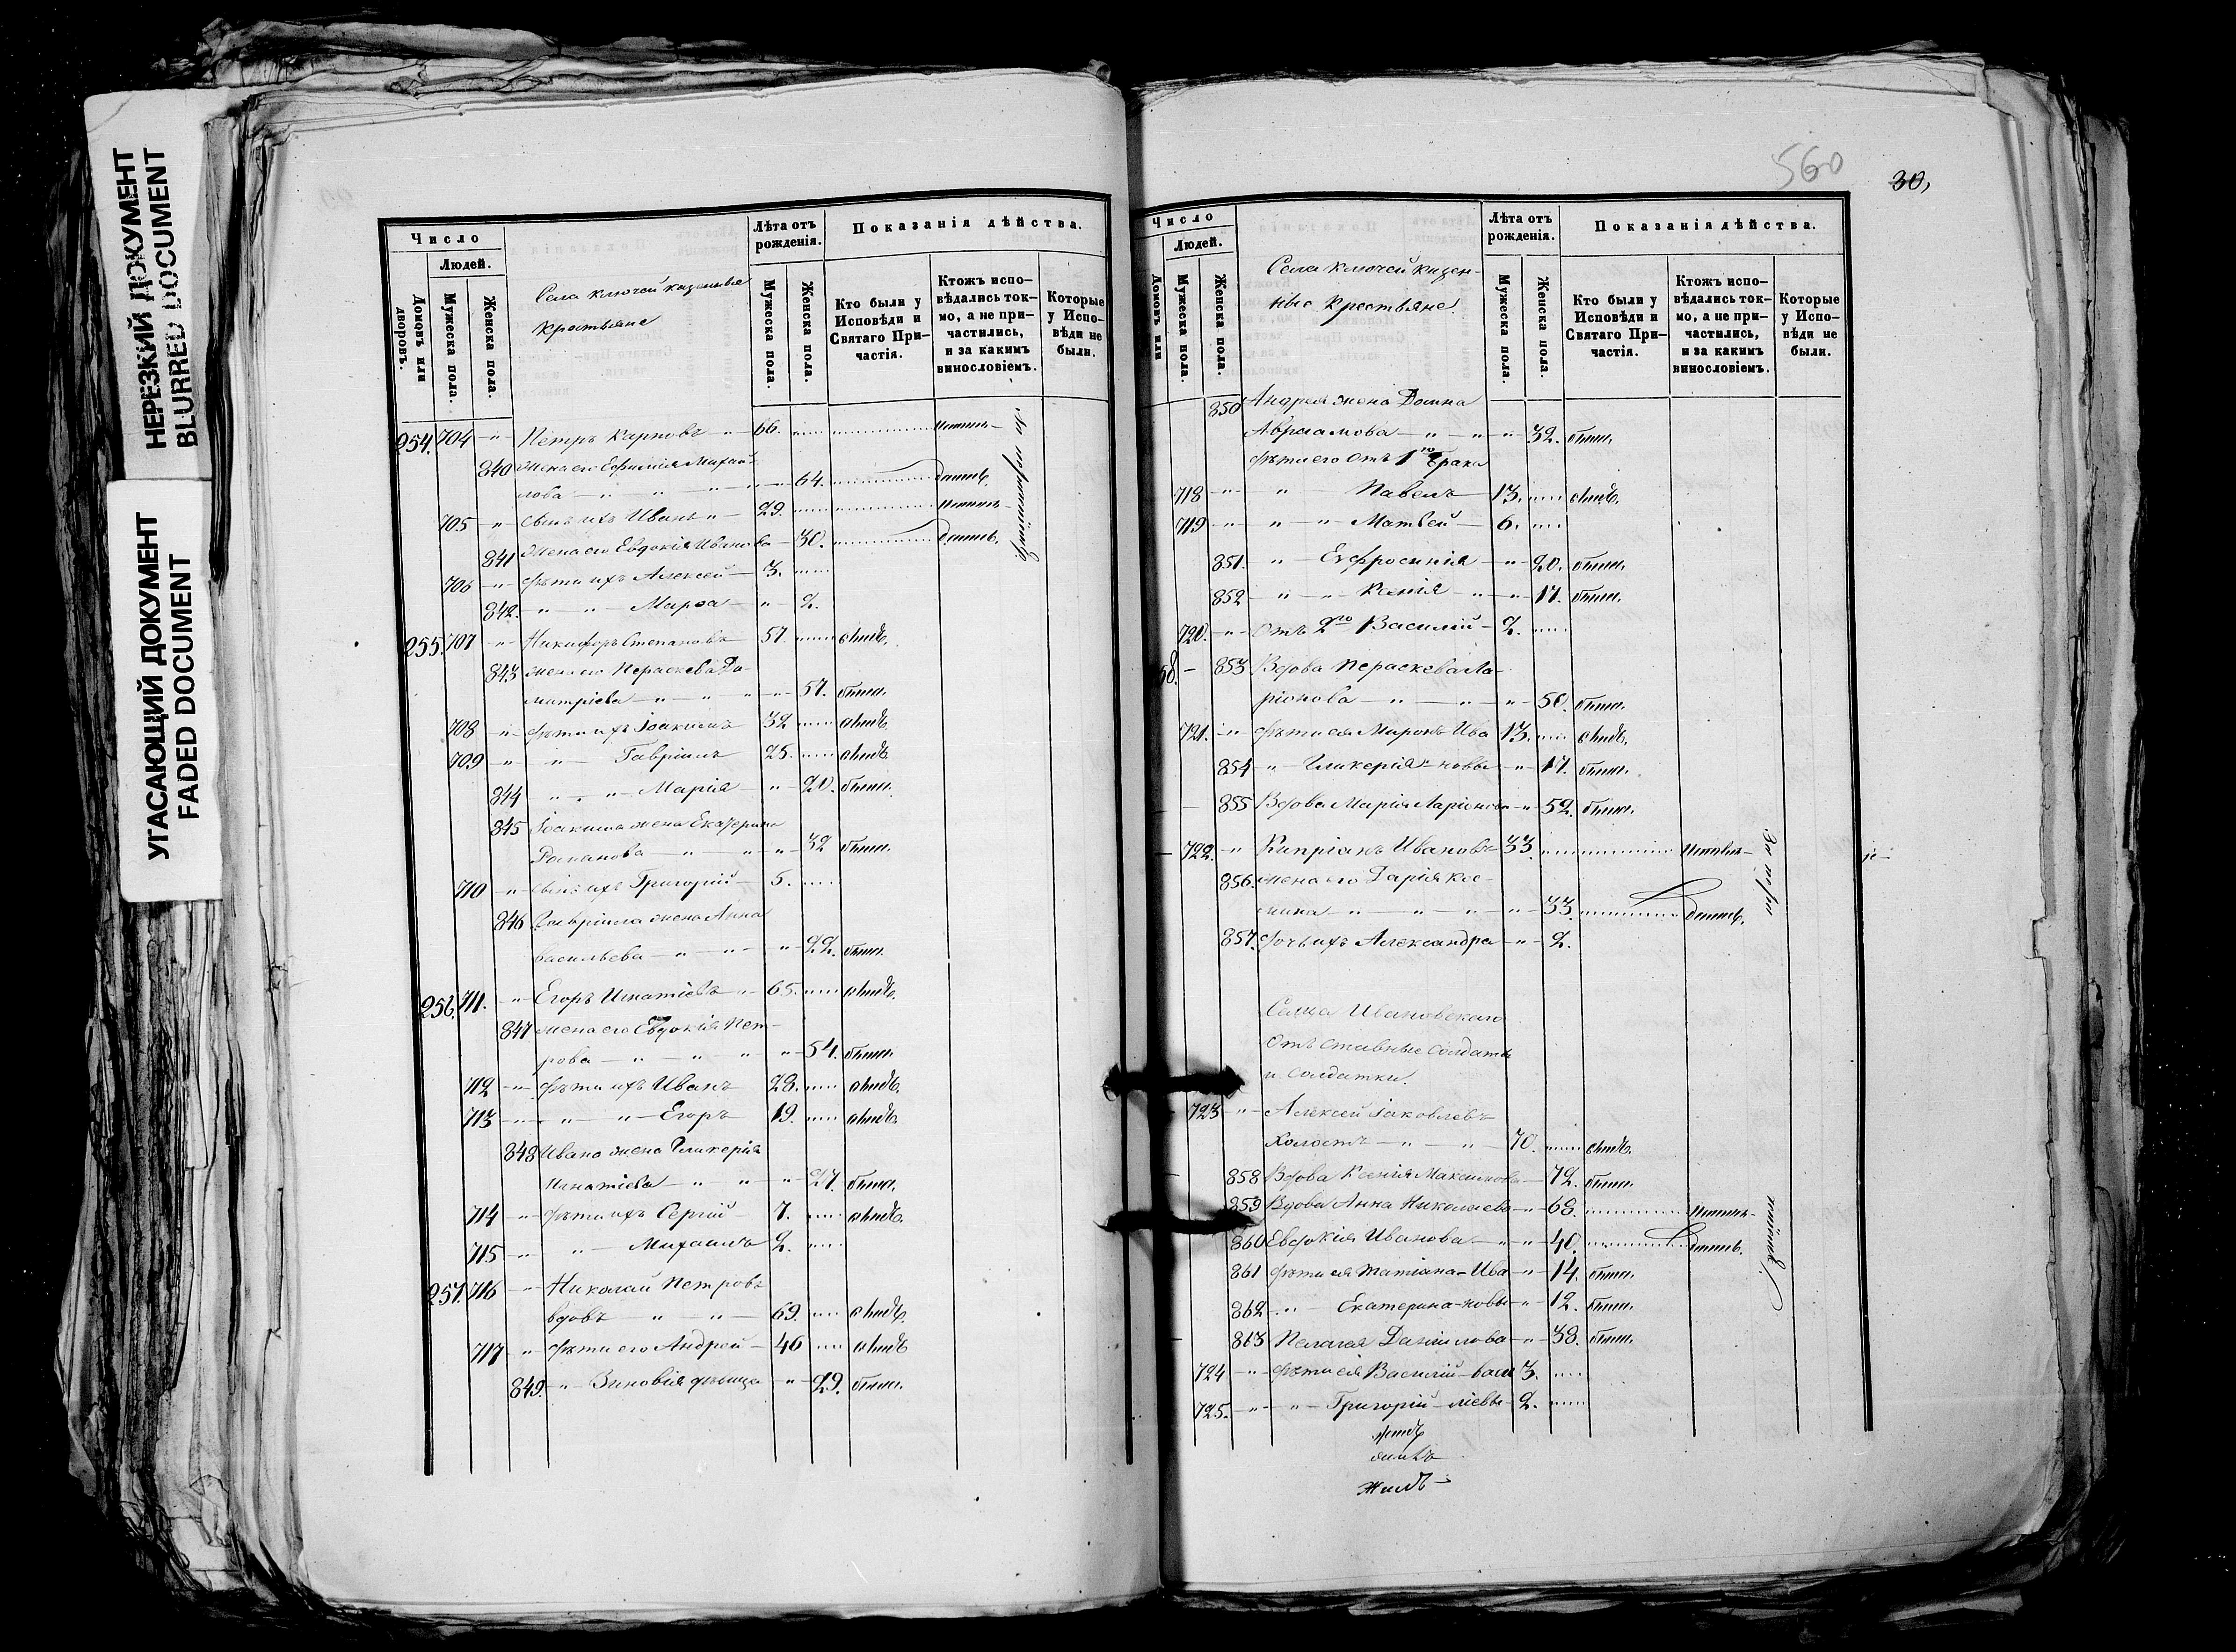 НЕРЕЗКИЙ ДОКУМЕНТ
BLURRED DOCUMENT
УГАСАЮЩИЙ ДОКУМЕНТ
FADED DOCUMENT
Число
Людей.
Домовъ или дворовъ.
Мужеска пола.
Женска пола.
Села Ключей казенные
Крестьяне
Лѣта отъ рожденія.
Мужеска пола.
Женска пола.
Показанія дѣйства.
Кто были у Исповѣди и Святаго При-частія.
Ктожъ испо-вѣдались ток-мо, а не при-частились, и за какимъ винословіемъ.
Которые у Испо-вѣди не были.
254. 704 -"- Петръ Карповъ - 66.
840 Жена его Ефимія Михай-
лова - " - " - " - 64.
705 - " - Сынъ ихъ Иванъ " - 29.
841 Жена его Евдокія Иванова - 30.
706 - " - Дѣти ихъ Алексей - 3.
842. " - " - Марѳа - " - 2.
255. 707 - " - Никифоръ Степановъ 57. онъ
843 Жена его Параскева Ди-
митріева - " - " - " - 57. были
708 - " - Дѣти ихъ Іоакимъ 32
709 - " - " - Гавріилъ 25.
844 " - " - Марія - " - 20. были.
845 Іоакима жена Екатерина
Романова - " - " - " - 32 были.
710 - " - Сынъ ихъ Григорий - 5.
846 Гавріила жена Анна
Васильева - " - " - " - 22. были.
256. 711. - " - Егоръ Игнатіевъ " - 65.
847 Жена его Евдокія Пет-
рова - " - " - " - 54. были.
712 - " - Дѣти ихъ Иванъ 28.
713 - " - " - Егоръ 19.
848 Ивана жена Гликерія
Игнатіева - " - " - " - 27. были.
714 - " - Дѣти ихъ Сергій - 7.
715 - " - " - Михаилъ 2.
257. 716 - " - Николай Петровъ
вдовъ - " - " - 69.
717 - " - Дѣти его Андрей - 46
849. - " - Зиновія дѣвица - " - 29. были.
560
30,
Число
Людей.
Домовъ или
Мужеска пола.
Женска пола.
Села Ключей казен-
ные Крестьяне.
Лѣта отъ рожденія.
Мужеска пола.
Женска пола.
Показанія дѣйства.
Кто были у Исповѣди и Святаго При-частія.
Ктожъ испо-вѣдались ток-мо, а не при-частились, и за какимъ винословіемъ.
Которые у Испо-вѣди не были.
850 Андрея жена Домна
Авраамова - " - " - " - 32. были.
Дѣти его отъ 1го брака
718 - " - " - Павелъ 13.
719 - " - " - Матвей - 6.
851. " - Евфросинія - " - 20. были.
852 " - " - Ксенія - " - " - 17. были.
720. - " - Отъ 2го Василий - 2.
58. - 853 Вдова Параскева Ла-
ріонова - " - " - " - 50. были.
721. - " - Дѣти ея Миронъ Ива 13.
854 " - Гликерія - новы - " - 17. были.
855 Вдова Марія Ларіонова - " - 52. были.
722. - " - Кипріанъ Ивановъ 33
856. Жена его Дарія Кос-
мина - " - " - " - " - 33.
857. Дочь ихъ Александра - " - 2.
Сельца Ивановскаго
Отставные Солдаты
и Солдатки.
723 - " - Алексей Іаковлевъ
Холостъ - " - " - 70.
858 Вдова Ксенія Максимова - 72. были.
859 Вдова Анна Николаева - " - 68.
860 Евдокія Иванова - " - " - 40.
861 Дѣти ея Татіана - Ива - " - 14. были.
862 - " - Екатерина - новы - " - 12. были.
863 Пелагея Данилова - " - 38. были.
724 - " - Дѣти ея Василий - Васи 3.
725. - " - " - Григорий - лiевы - 2.